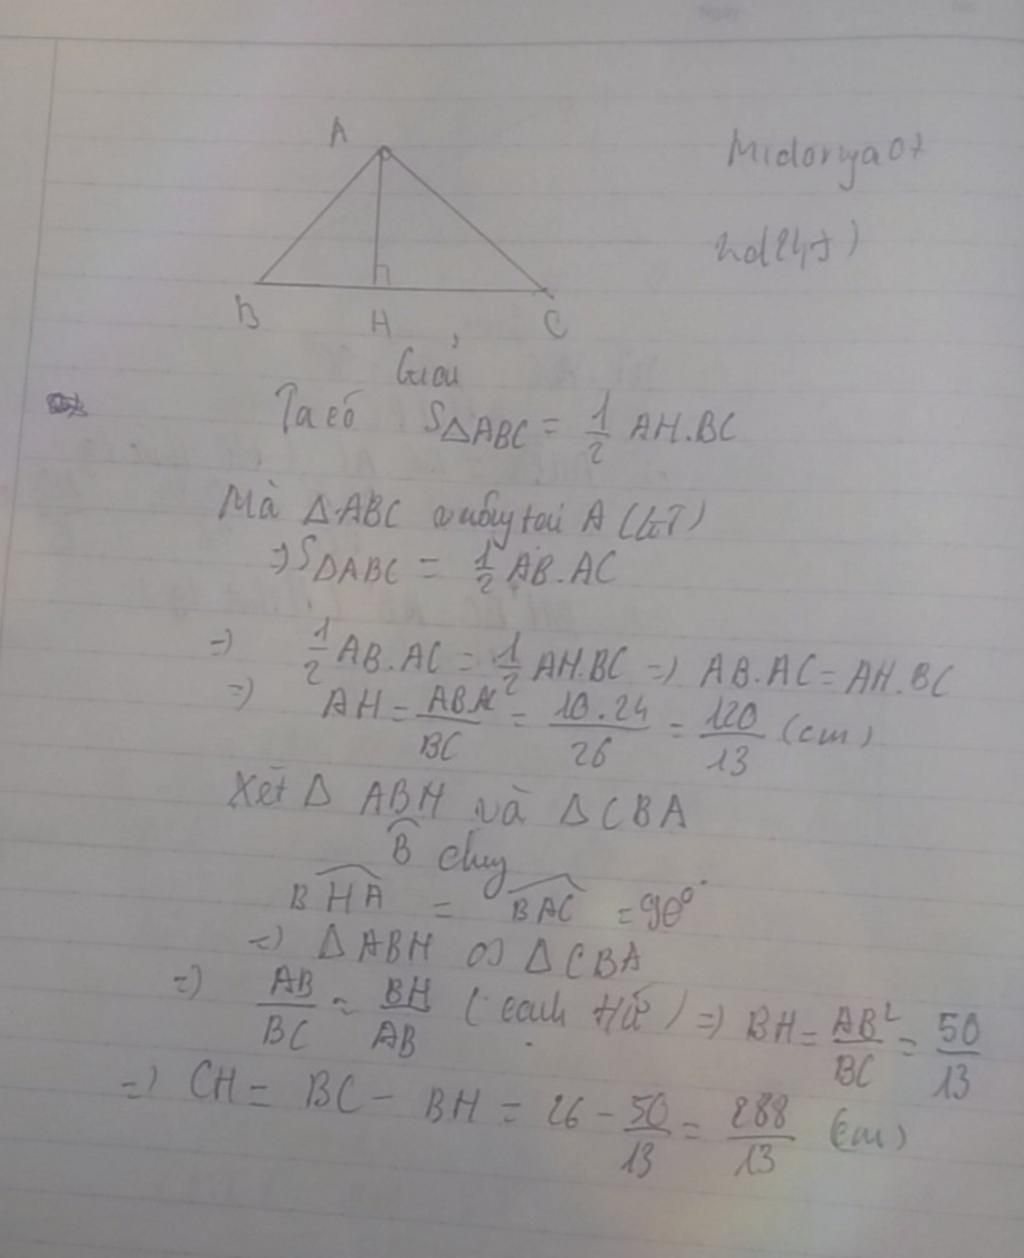 A
Midoriya07
B H C
Giải
Ta có S△ABC = 1/2 AH.BC
Mà △ABC vuông tại A (GT)
=> S△ABC = 1/2 AB.AC
=> 1/2 AB.AC = 1/2 AH.BC => AB.AC = AH.BC
=> AH = AB.AC/BC = 10.24/26 = 120/13 (cm)
Xét △ ABH và △CBA
B̂ chung
BHA = BAC = 90°
=> △ABH ∽ △CBA
=> AB/BC = BH/AB (cạnh t/ứ) => BH = AB²/BC = 50/13
=> CH = BC - BH = 26 - 50/13 = 288/13 (cm)